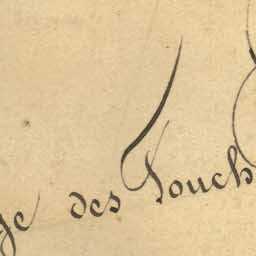 ge des Touch